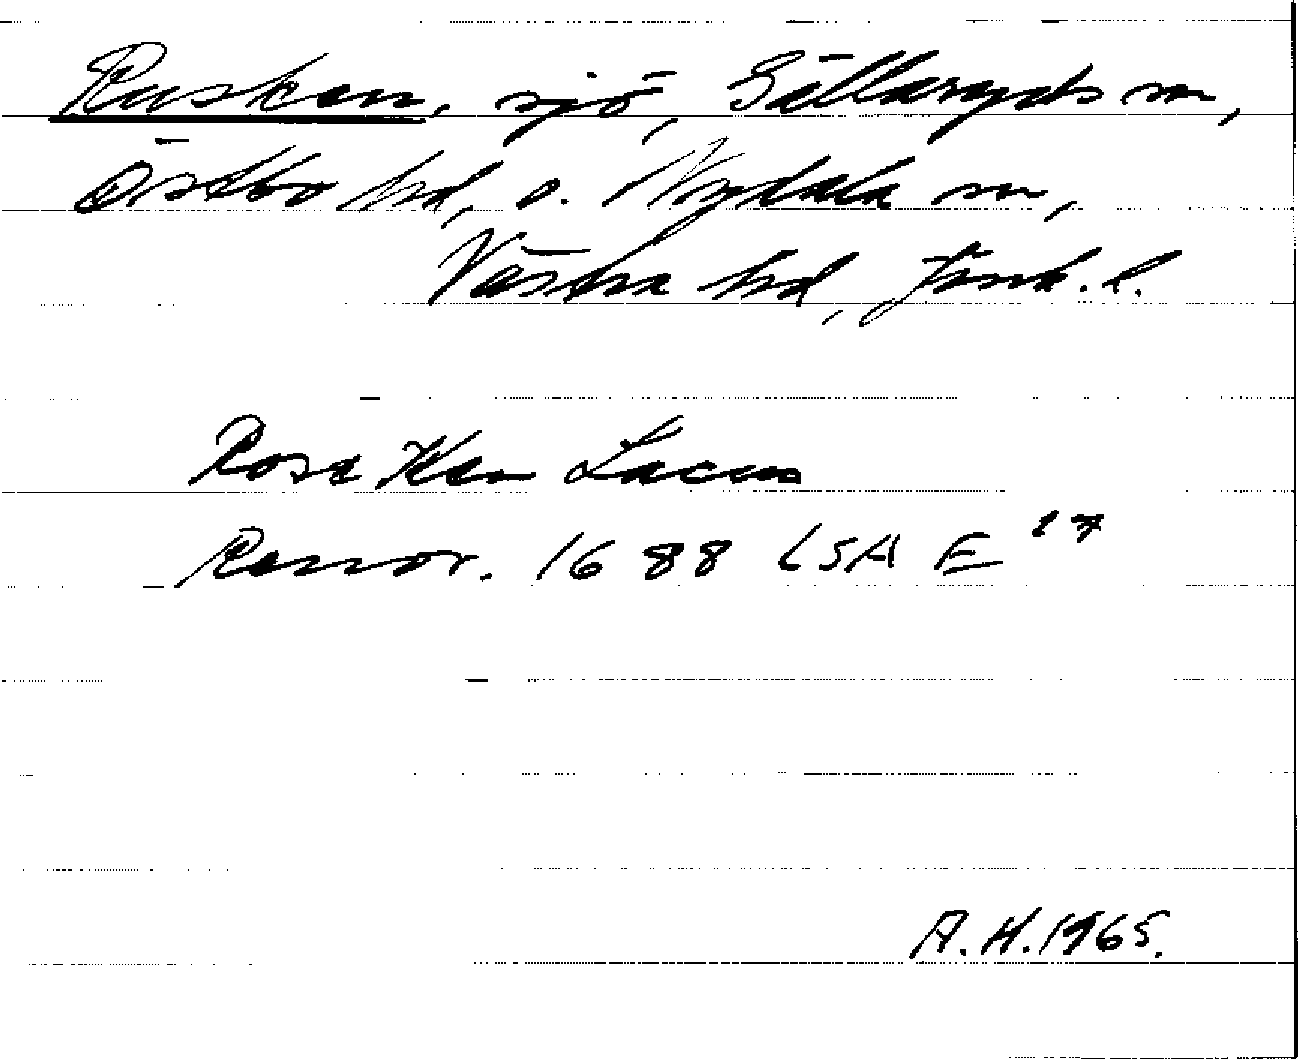 Rusken, sjö, Gällaryds sn,
Östbo hd, o. Nydala sn,
Västra hd, Jönk. l.
Rosa Ken Lacus
Rannov. 1688 LSA E 17
A. H. 1965.